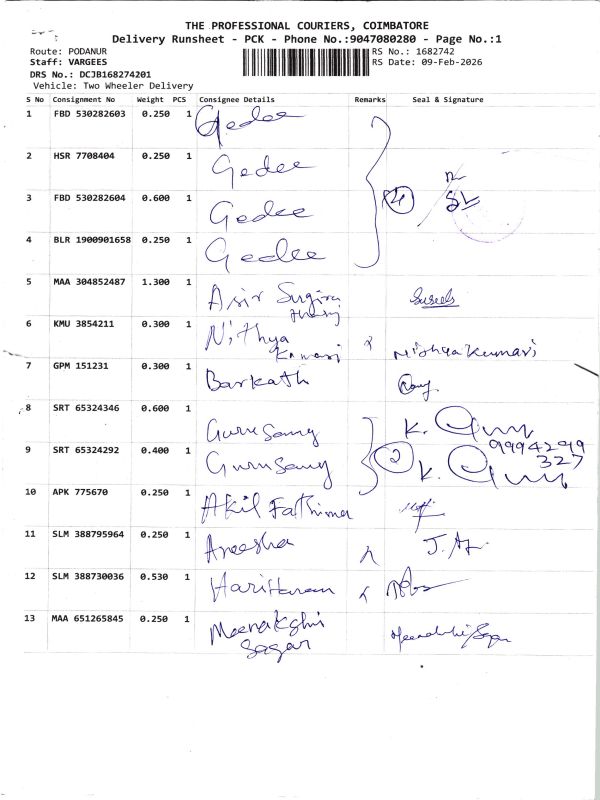 THE PROFESSIONAL COURIERS, COIMBATORE
Delivery Runsheet - PCK - Phone No.:9047080280 - Page No.:1
Route: PODANUR RS No.: 1682742
Staff: VARGEES RS Date: 09-Feb-2026
DRS No.: DCJB168274201
Vehicle: Two Wheeler Delivery
S No Consignment No Weight PCS Consignee Details Remarks Seal & Signature
1 FBD 530282603 0.250 1 Gedee
2 HSR 7708404 0.250 1 Gedee
3 FBD 530282604 0.600 1 Gedee 4
4 BLR 1900901658 0.250 1 Gedee
5 MAA 304852487 1.300 1 Asir Sugira
6 KMU 3854211 0.300 1 Nithya Kumari Nithya Kumari
7 GPM 151231 0.300 1 Barkath
8 SRT 65324346 0.600 1 Gurusamy K.
9994299
327
9 SRT 65324292 0.400 1 Gurusamy 2 K.
10 APK 775670 0.250 1 Akil Fathima
11 SLM 388795964 0.250 1 Areesha
12 SLM 388730036 0.530 1 Hariharan
13 MAA 651265845 0.250 1 Meenakshi
Sagar